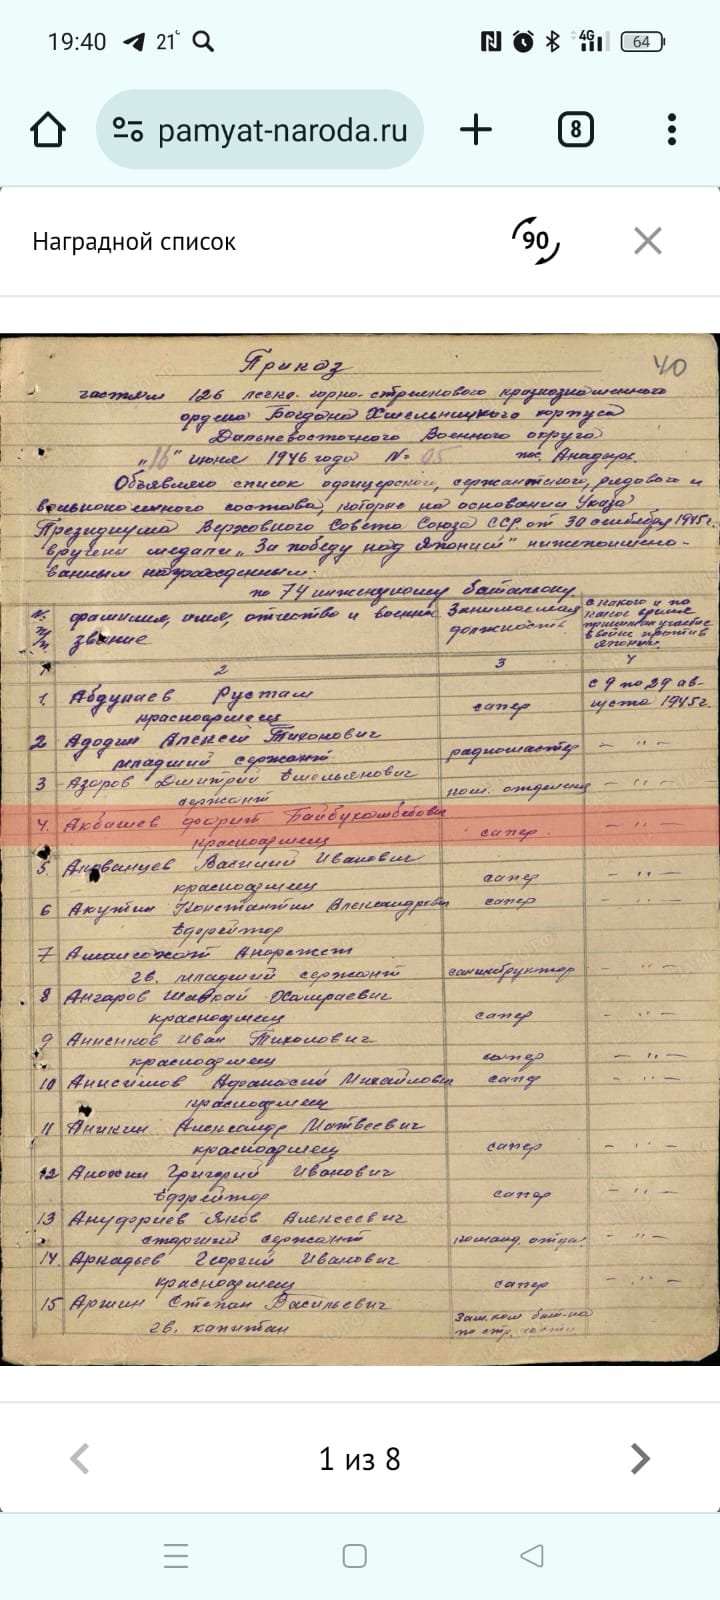 19:40 21°
4G 64
pamyat-naroda.ru
8
Наградной список
90
40
Приказ
частям 126 легко-горно-стрелкового краснознаменного
ордена Богдана Хмельницкого корпуса
Дальневосточного Военного округа
"16" июня 1946 года № 05 пос. Анадырь.
Объявляю список офицерского, сержантского, рядового и
вольнонаемного состава, которые на основании Указа
Президиума Верховного Совета Союза ССР от 30 сентября 1945г.
вручены медали „За победу над Японией" нижепоимено-
ванным награжденным:
по 74 инженерному батальону
№ п/п
фамилия, имя, отчество и военное звание
Занимаемая должность
с какого и по какое время принимал участие в войне против Японии
1 2 3 4
1. Абдулаев Рустам
красноармеец сапер с 9 по 29 августа 1945г.
2 Адодин Алексей Тихонович
младший сержант радиомастер – " –
3 Азаров Дмитрий Емельянович
сержант пом. – " –
4. Акбашев Фарит
красноармеец сапер. – " –
5. Василий Иванович
красноармеец сапер – " –
6 Акутин Константин Александрович сапер – " –
Ефрейтор
7
гв. младший сержант санинструктор – " –
8 Ангаров
красноармеец сапер – " –
9 Анненков Иван Тихонович
красноармеец сапер – " –
10 Анисимов Афанасий Михайлович сапер – " –
красноармеец
11 Аникин Александр Матвеевич
красноармеец сапер – " –
12 Григорий Иванович
Ефрейтор сапер – " –
13 Ануфриев Яков Алексеевич
старший сержант команд. отдел. – " –
14. Аркадьев Георгий Иванович
красноармеец сапер – " –
15 Аршин Степан Васильевич
гв. капитан Зам. ком. бат-на
по стр. части
1 из 8